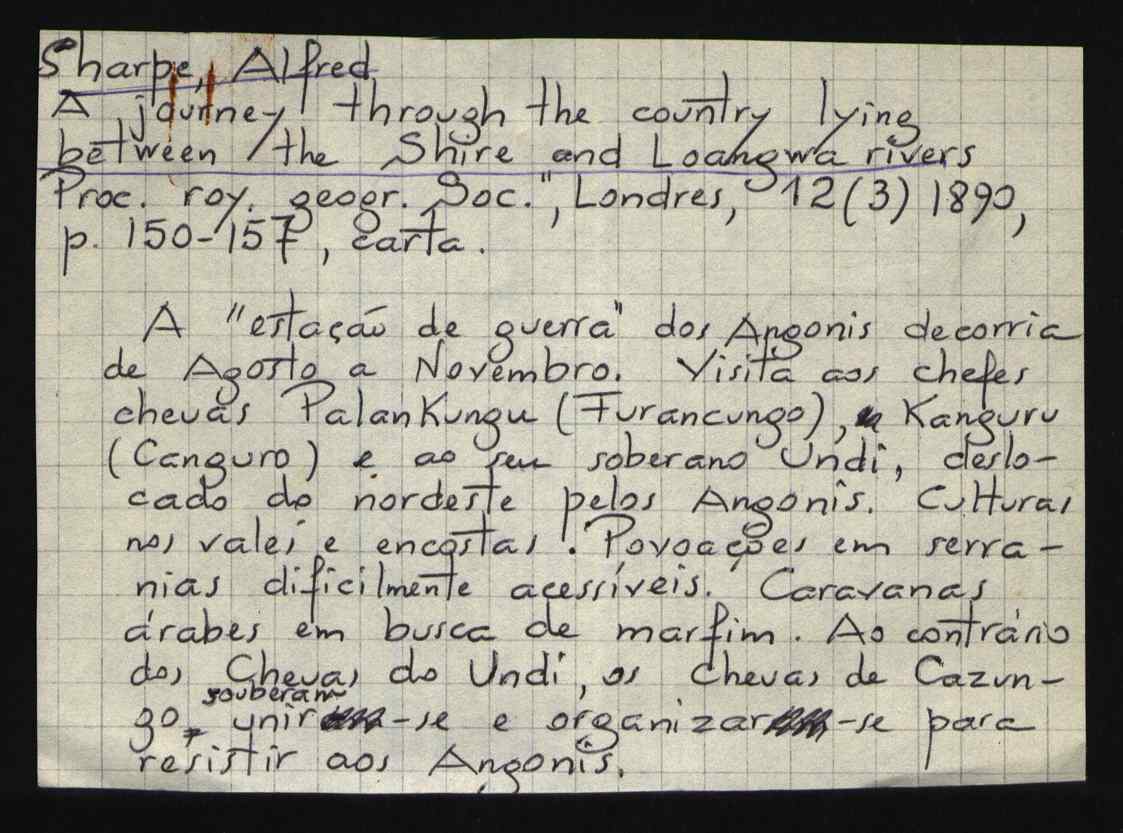 Sharpe, Alfred
A journey through the country lying
between the Shire and Loangwa rivers
Proc. roy. geogr. Soc.", Londres, 12(3) 1890,
p. 150-157, carta.
A "estação de guerra" dos Angonis decorria
de Agosto a Novembro. Visita aos chefes
chevas Palankungu (Furancungo), Kanguru
(Canguro) e ao seu soberano Undi, deslo-
cado do nordeste pelos Angonis. Culturas
nos vales e encostas. Povoações em serra-
nias dificilmente acessíveis. Caravanas
árabes em busca de marfim. Ao contrário
dos Chevas do Undi, os chevas de Cazun-
go souberam unir-se e organizar-se para
resistir aos Angonis.